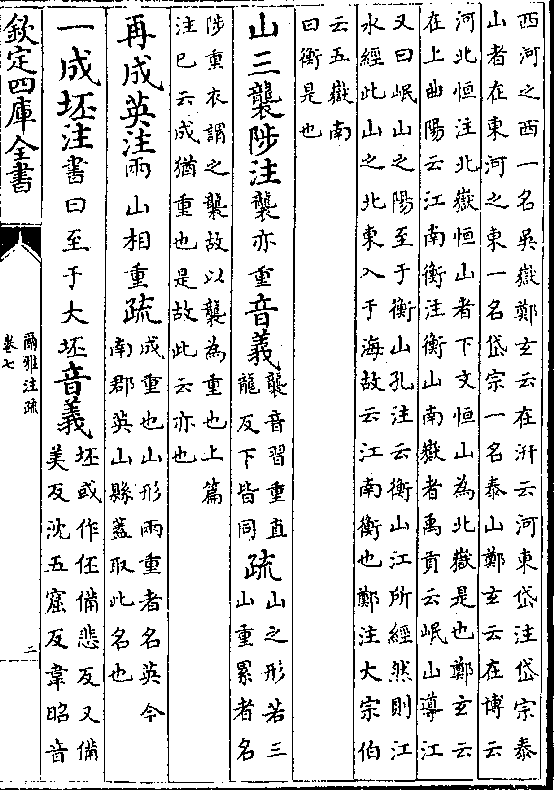 西河之西一名吳嶽鄭玄云在汧云河東岱注岱宗泰
山者在東河之東一名岱宗一名泰山鄭玄云在博云
河北恒注北嶽恒山者下文恒山為北嶽是也鄭玄云
在上曲陽云江南衡注衡山南嶽者禹貢云岷山導江
又曰岷山之陽至于衡山孔注云衡山江所經然則江
水經此山之北東入于海故云江南衡也鄭注大宗伯
云五嶽南
曰衡是也
山三襲陟注襲亦重音義襲音習重直龍反下皆同疏山之形若三山重累者名
陟重衣謂之襲故以襲為重也上篇
注巳云成猶重也是故此云亦也
再成英注兩山相重疏成重也山形兩重者名英今南郡英山縣蓋取此名也
一成坯注書曰至于大坯音義坯或作伾備悲反又備美反沈五窟反韋昭音
欽定四庫全書
爾雅注疏
卷七
二